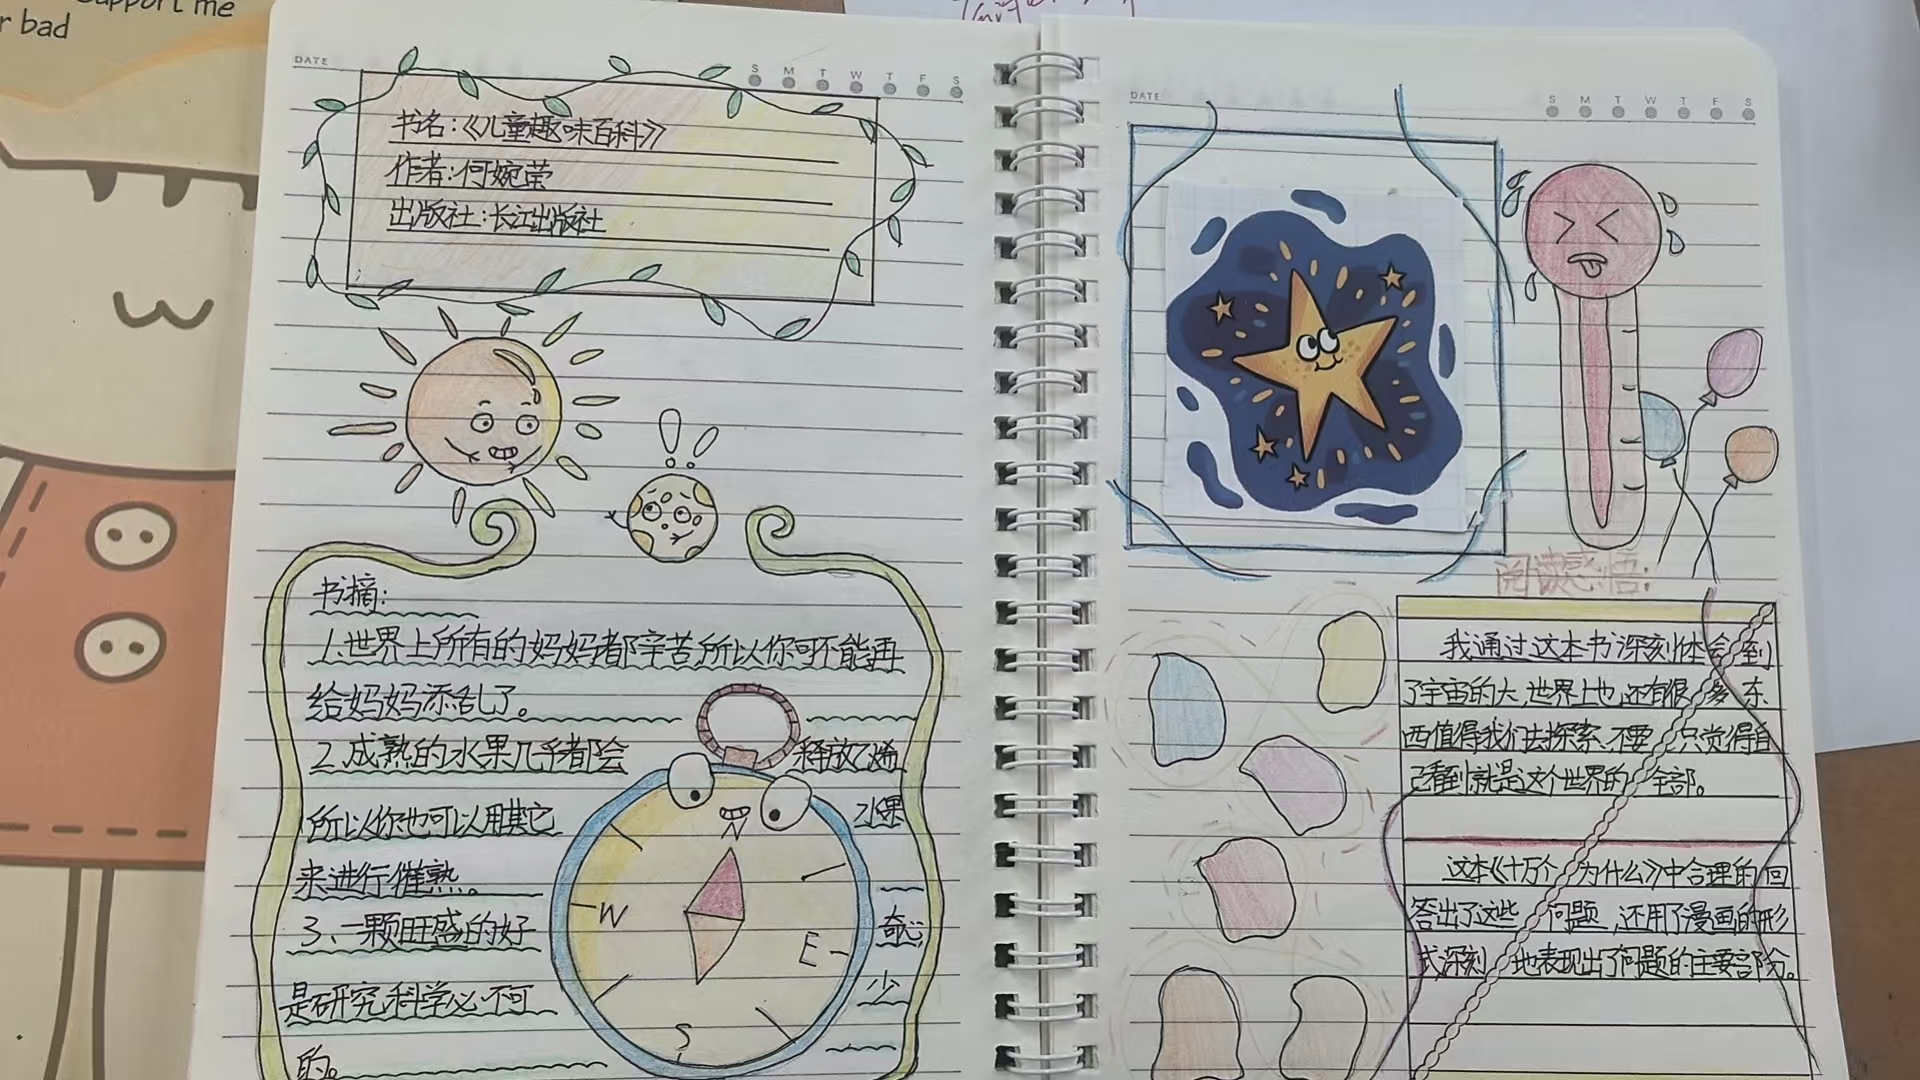 support me
r bad
DATE
S M T W T F S
书名:《儿童趣味百科》
作者:何婉莹
出版社:长江出版社
书摘:
1.世界上所有的妈妈都辛苦所以你可不能再
给妈妈添乱了。
2.成熟的水果几乎都会 释放乙烯
所以你也可以用其它 水果
来进行催熟。
3、一颗旺盛的好 奇心
是研究科学必不可 少
的。
W
E
S
DATE
S M T W T F S
阅读感悟:
我通过这本书深刻体会到
了宇宙的大,世界上也还有很多东
西值得我们去探索,不要只觉得自
己看到就是这个世界的全部。
这本《十万个为什么》中合理的回
答出了这些问题,还用了漫画的形
式深刻地表现出了问题的主要部分。